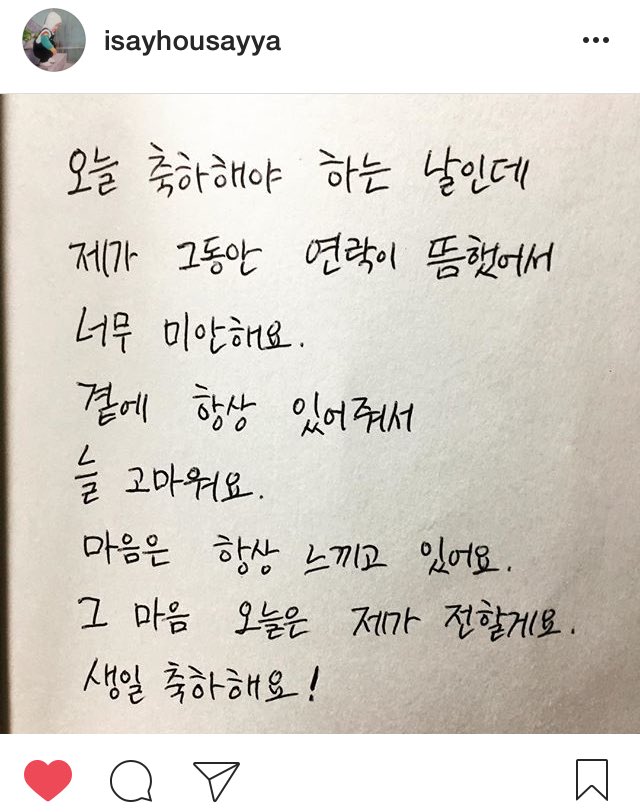 isayhousayya
오늘 축하해야 하는 날인데
제가 그동안 연락이 뜸했어서
너무 미안해요.
곁에 항상 있어줘서
늘 고마워요.
마음은 항상 느끼고 있어요.
그 마음 오늘은 제가 전할게요.
생일 축하해요!